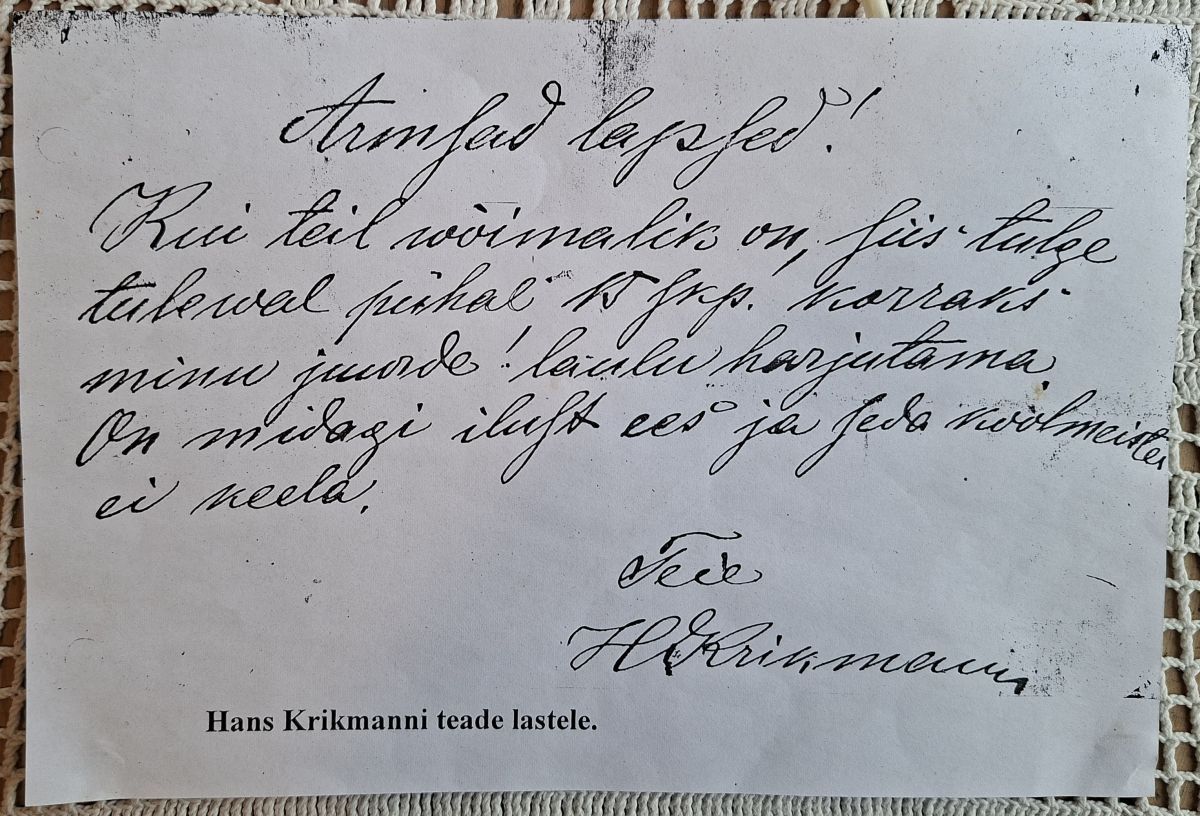 Armsad lapsed!
Kui teil wõimalik on, siis tulge
tulewal pühal 15 skp. korraks
minu juurde! laulu harjutama
On midagi ilust ees ja seda koolmeister
ei keela.
Teie
HKrikmann
Hans Krikmanni teade lastele.